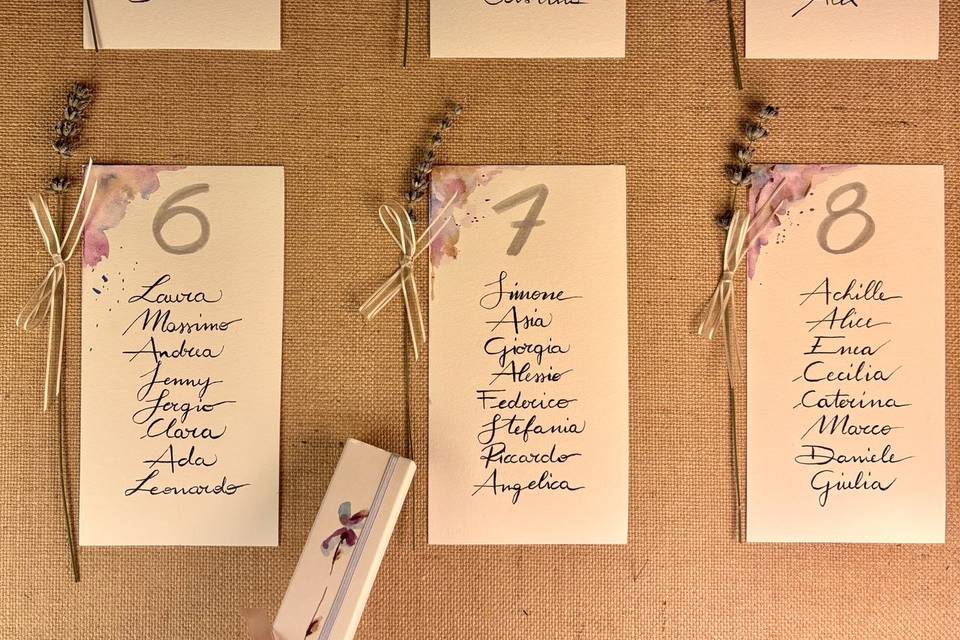 6
Laura
Massimo
Andrea
Jenny
Sergio
Clara
Ada
Leonardo
7
Simone
Asia
Giorgia
Alessio
Federico
Stefania
Riccardo
Angelica
8
Achille
Alice
Enea
Cecilia
Caterina
Marco
Daniele
Giulia